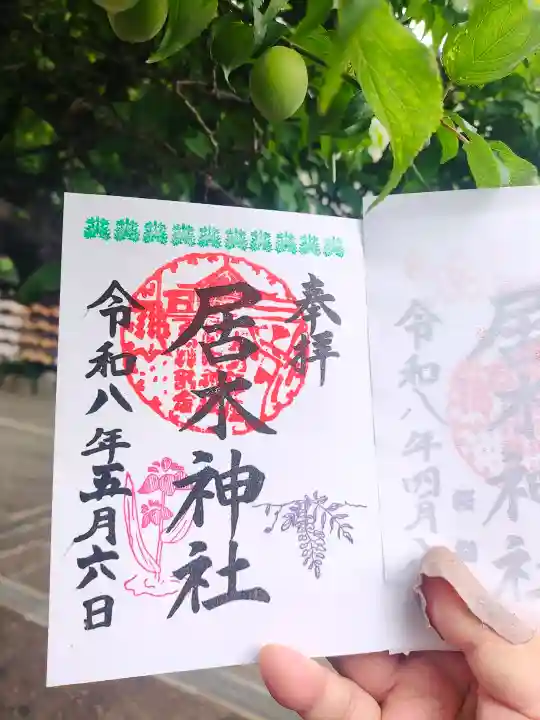 奉拝
居木神社
令和八年五月六日
居木神社
令和八年四月